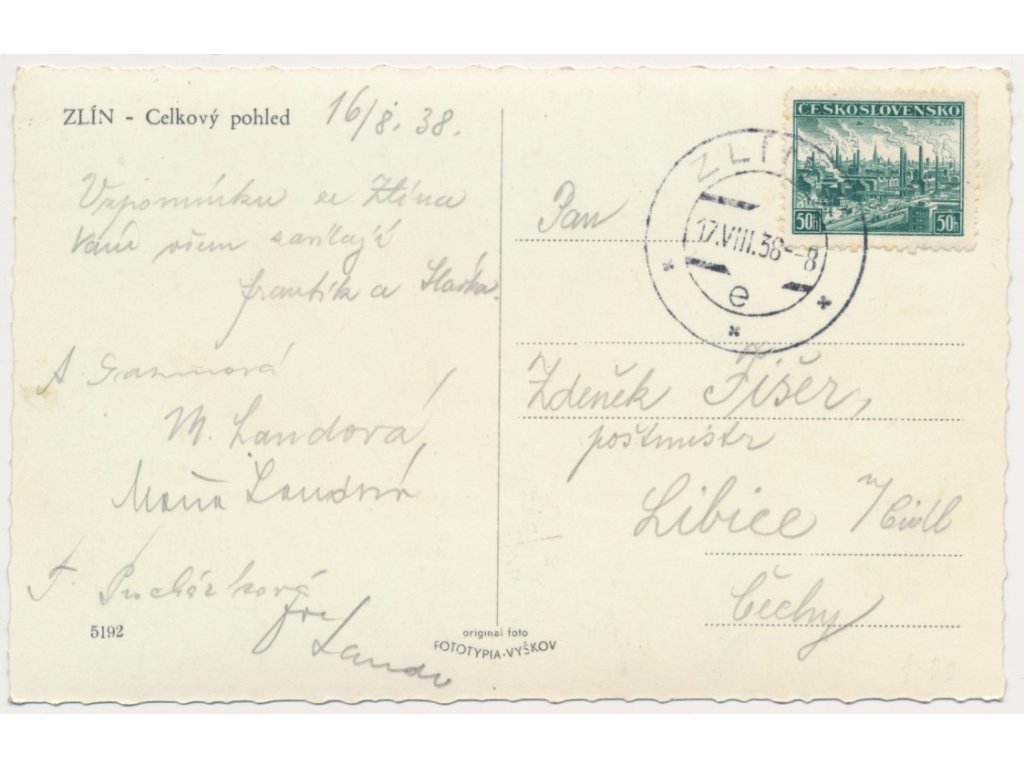 ZLÍN - Celkový pohled 16/8. 38.
Vzpomínku ze Zlína
Vám všem zasílají
Frantík a Slávka.
A
M. Landová
Máňa Landová
F. Puchárková
Landa
5192
original foto
FOTOTYPIA-VYŠKOV
ČESKOSLOVENSKO
PLZEŇ
50h 50h
ZLÍN
17.VIII.38--8
e
Pan
Zdeněk Fišer,
poštmistr
Libice n/Cidl
Čechy